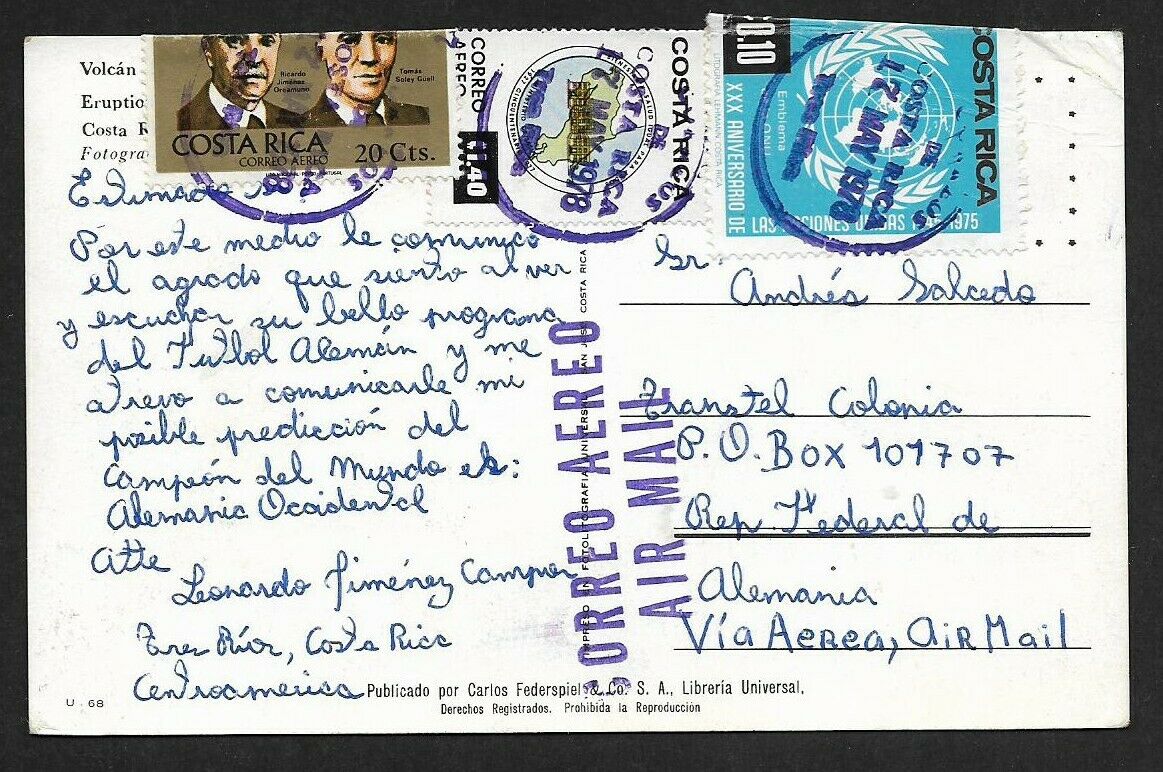 Volcán
Eruptio
Costa R
Fotogra
Ricardo
Jiménez
Oreamuno
Tomás
Soley Güell
COSTA RICA
CORREO AEREO
20 Cts.
CORREO
AEREO
COSTA RICA
₡1.40
12 MAY 1978
COSTA RICA
0.10
COSTA RICA
Emblema
ONU
LITOGRAFIA LEHMANN COSTA RICA
XXX ANIVERSARIO DE
LAS NACIONES UNIDAS 1945-1975
COSTA RICA
12 MAY 1978
Estimado
Por este medio le comunico
el agrado que siento al ver
y escuchar su bello programa
del Futbol Alemán y me
atrevo a comunicarle mi
posible predicción del
Campeón del Mundo es:
Alemania Occidental
Atte
Leonardo Jiménez Campos
Tres Ríos, Costa Rica
Centroamerica
Sr. Andrés Salcedo
Transtel Colonia
P.O. BOX 101707
Rep Federal de
Alemania
Vía Aerea, Air Mail
CORREO AEREO
AIR MAIL
IMPRESO EN FOTOLITOGRAFIA UNIVERSAL SAN JOSE COSTA RICA
Publicado por Carlos Federspiel & Co. S. A., Librería Universal,
Derechos Registrados. Prohibida la Reproducción
U - 68